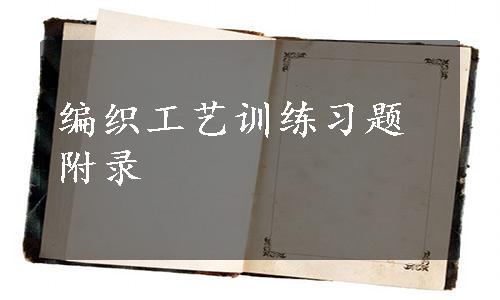 编织工艺训练习题
附录